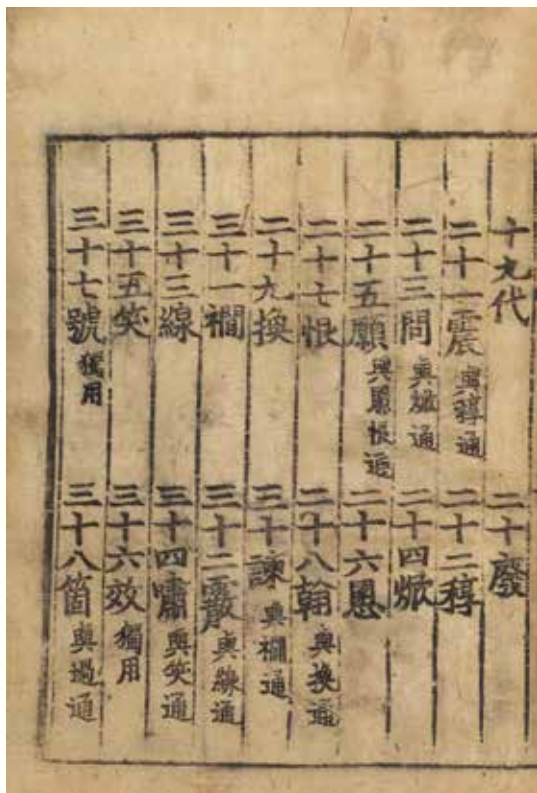 十九代 二十廢
二十一震 與稕通 二十二稕
二十三問 與焮通 二十四焮
二十五願 與慁恨通 二十六慁
二十七恨 二十八翰 與換通
二十九換 三十諫 與襇通
三十一襇 三十二霰 與線通
三十三線 三十四嘯 與笑通
三十五笑 三十六效 獨用
三十七號 獨用 三十八箇 與過通